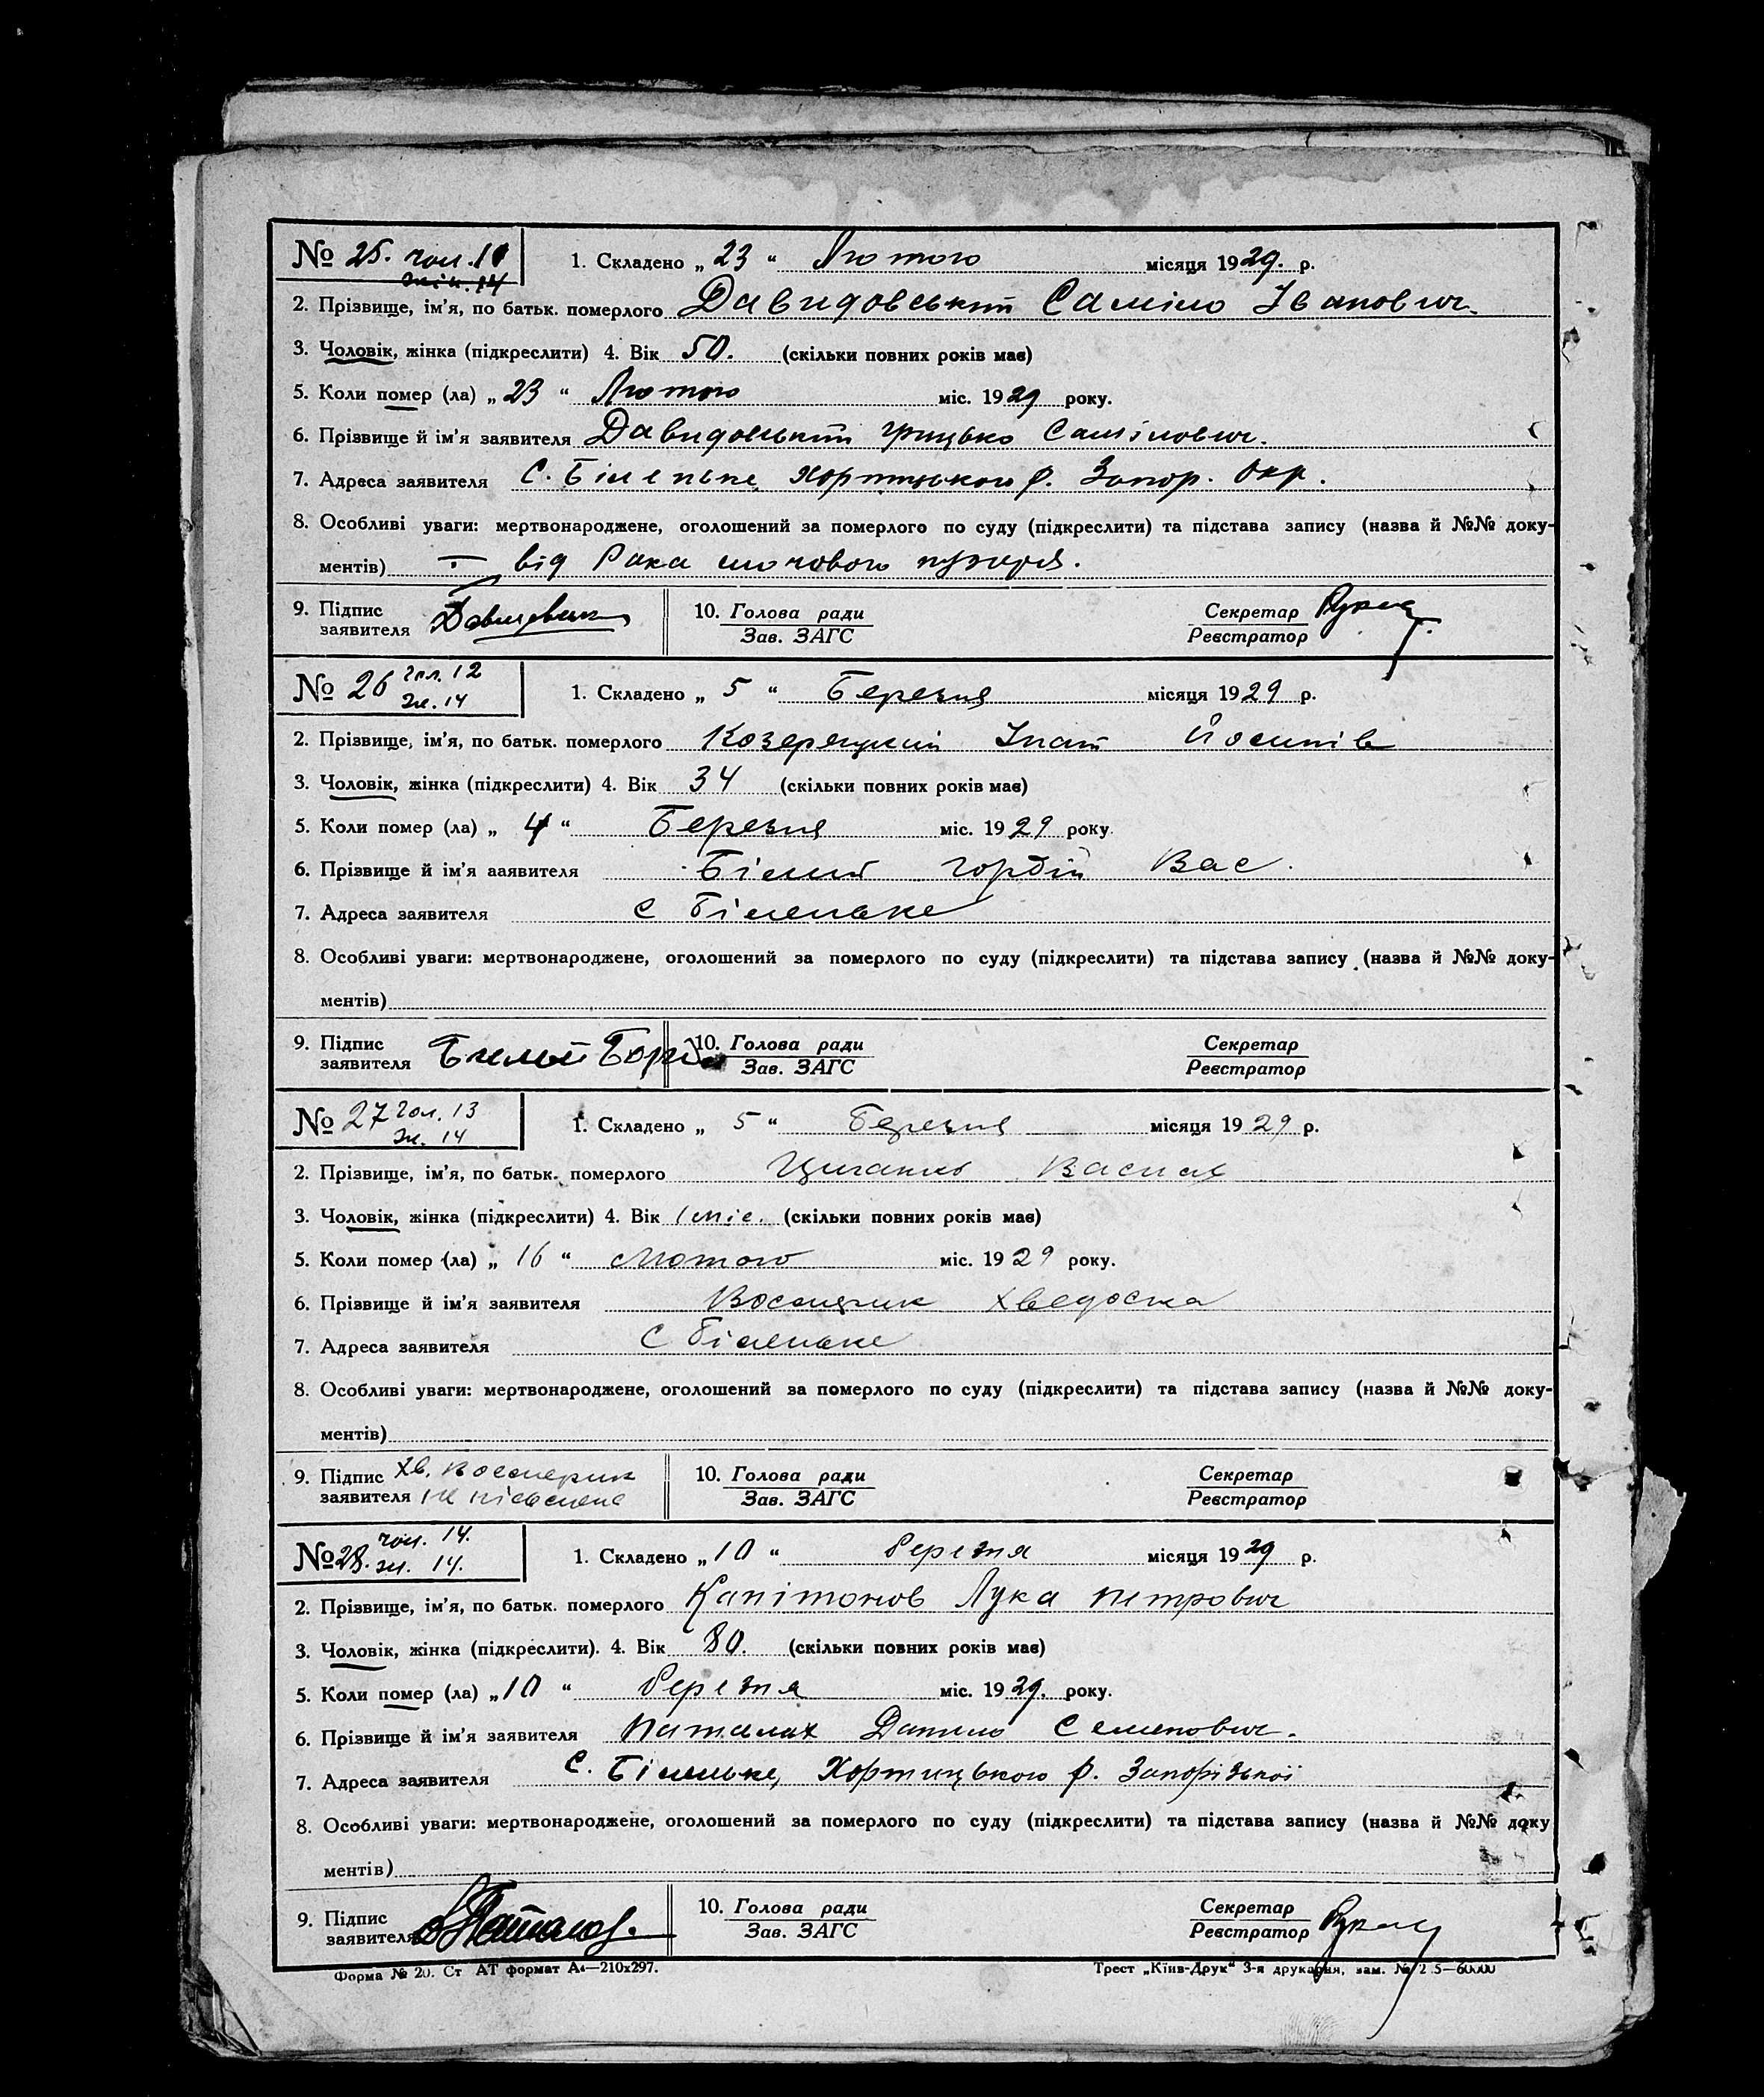 № 25. чол. 11
жін. 14
1. Складено „ 23 “ Лютого місяця 1929. р.
2. Прізвище, ім'я, по батьк. померлого Давидовський Саміло Іванович.
3. Чоловік, жінка (підкреслити) 4. Вік 50. (скільки повних років має)
5. Коли помер (ла) „ 23 “ Лютого міс. 1929 року.
6. Прізвище й ім'я заявителя Давидовський Грицько Самілович.
7. Адреса заявителя С. Біленьке, Хортицького р. Запор. Окр.
8. Особливі уваги: мертвонароджене, оголошений за померлого по суду (підкреслити) та підстава запису (назва й №№ доку-
ментів) від Рака мочового пузиря.
9. Підпис заявителя
10. Голова ради
Зав. ЗАГС
Секретар
Реєстратор
№ 26 Чол. 12
Ж. 14
1. Складено „ 5 “ Березня місяця 1929 р.
2. Прізвище, ім'я, по батьк. померлого Козеряцкий Ігнат Йосипів
3. Чоловік, жінка (підкреслити) 4. Вік 34 (скільки повних років має)
5. Коли помер (ла) „ 4 “ Березня міс. 1929 року.
6. Прізвище й ім'я ааявителя Білий Гордій Вас.
7. Адреса заявителя с Біленьке
8. Особливі уваги: мертвонароджене, оголошений за померлого по суду (підкреслити) та підстава запису (назва й №№ доку-
ментів)
9. Підпис заявителя Билый
10. Голова ради
Зав. ЗАГС
Секретар
Реєстратор
№ 27 Чол. 13
Ж. 14
1. Складено „ 5 “ Березня місяця 1929 р.
2. Прізвище, ім'я, по батьк. померлого Циганко Василь
3. Чоловік, жінка (підкреслити) 4. Вік 1 міс. (скільки повних років має)
5. Коли помер (ла) „ 16 “ Лютого міс. 1929 року.
6. Прізвище й ім'я заявителя Хведоска
7. Адреса заявителя с Біленьке
8. Особливі уваги: мертвонароджене, оголошений за померлого по суду (підкреслити) та підстава запису (назва й №№ доку-
ментів)
9. Підпис Хв.
заявителя не письмена
10. Голова ради
Зав. ЗАГС
Секретар
Реєстратор
№ 28. чол. 14.
жі. 14.
1. Складено „ 10 “ Березня місяця 1929 р.
2. Прізвище, ім'я, по батьк. померлого Капітонов Лука Петрович
3. Чоловік, жінка (підкреслити). 4. Вік 80. (скільки повних років має)
5. Коли помер (ла) „ 10 “ Березня міс. 1929. року.
6. Прізвище й ім'я заявителя Паталах Данило Семенович.
7. Адреса заявителя С. Біленьке, Хортицького р. Запорізької
8. Особливі уваги: мертвонароджене, оголошений за померлого по суду (підкреслити) та підстава запису (назва й №№ доку
ментів)
9. Підпис заявителя
10. Голова ради
Зав. ЗАГС
Секретар
Реєстратор
Форма № 20. Ст АТ формат А4—210x297.
Трест „Київ-Друк“ 3-я друкарня, зам. №